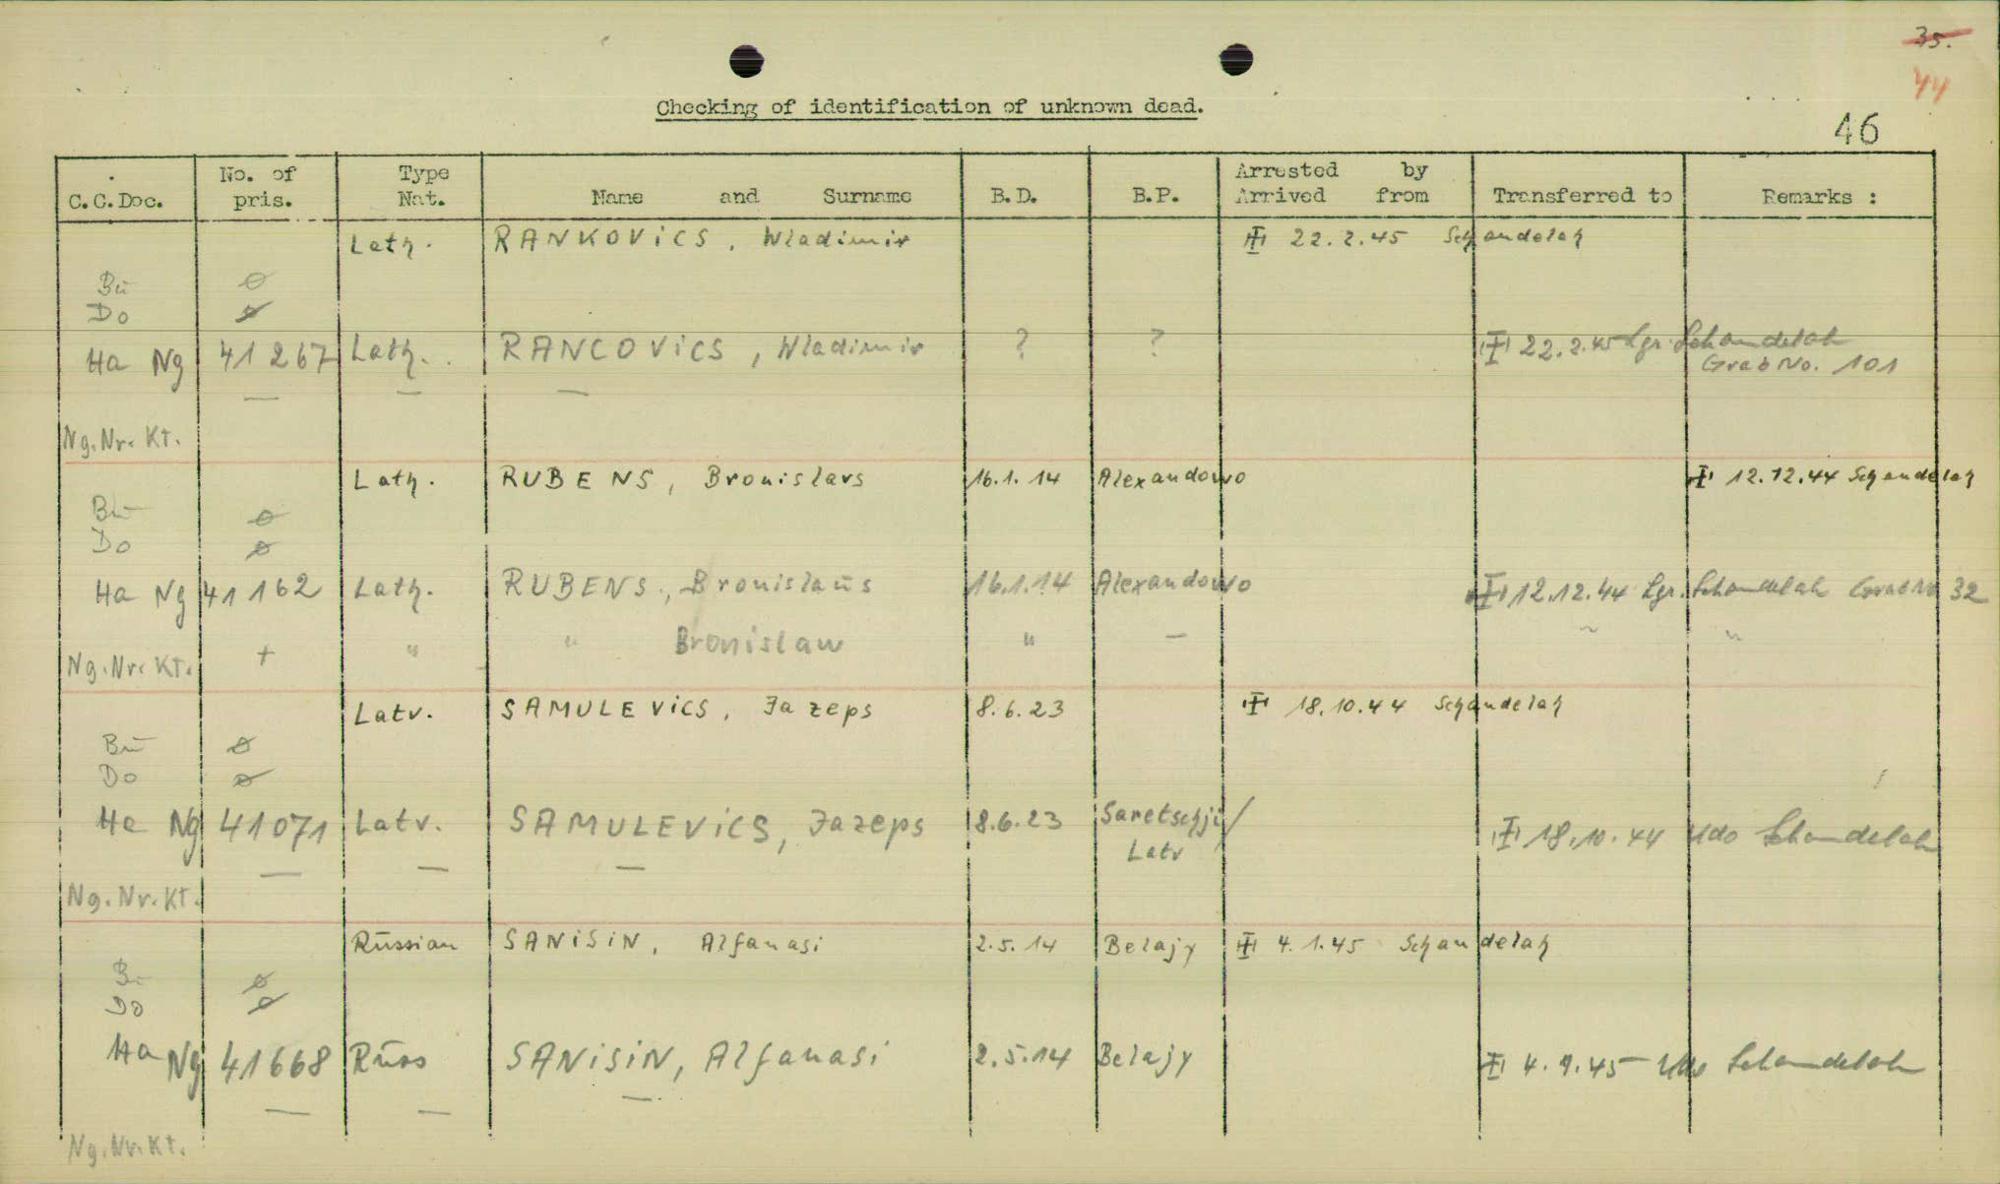 35.
44
46
Checking of identification of unknown dead.
C.C.Doc. No. of pris. Type Nat. Name and Surname B.D. B.P. Arrested by Arrived from Transferred to Remarks :
Lath. RANKOVICS, Wladimir 22.2.45 Schandelah
Bu ∅
Do ∅
Ha Ng 41267 Lath. RANCOVICS, Wladimir ? ? 22.2.45 Lgr. Schandelah
Grab No. 101
— — —
Ng.Nr.Kt.
Lath. RUBENS, Bronislavs 16.1.14 Alexandowo 12.12.44 Schandelah
Bu ∅
Do ∅
Ha Ng 41162 Lath. RUBENS, Bronislaus 16.1.14 Alexandowo 12.12.44 Lgr. Schandelah Grab No 32
Ng.Nr.Kt. + " " Bronislaw " — " "
Latv. SAMULEVICS, Jazeps 8.6.23 18.10.44 Schandelah
Bu ∅
Do ∅
Ha Ng 41071 Latv. SAMULEVICS, Jazeps 8.6.23 Saretschji/ 18.10.44 Udo Schandelah
Latv
— — —
Ng.Nr.Kt.
Russian SANISIN, Alfanasi 2.5.14 Belajy 4.1.45 Schandelah
Bu ∅
Do ∅
Ha Ng 41668 Russ SANISIN, Alfanasi 2.5.14 Belajy 4.1.45 Schandelah
— — —
Ng.Nr.Kt.